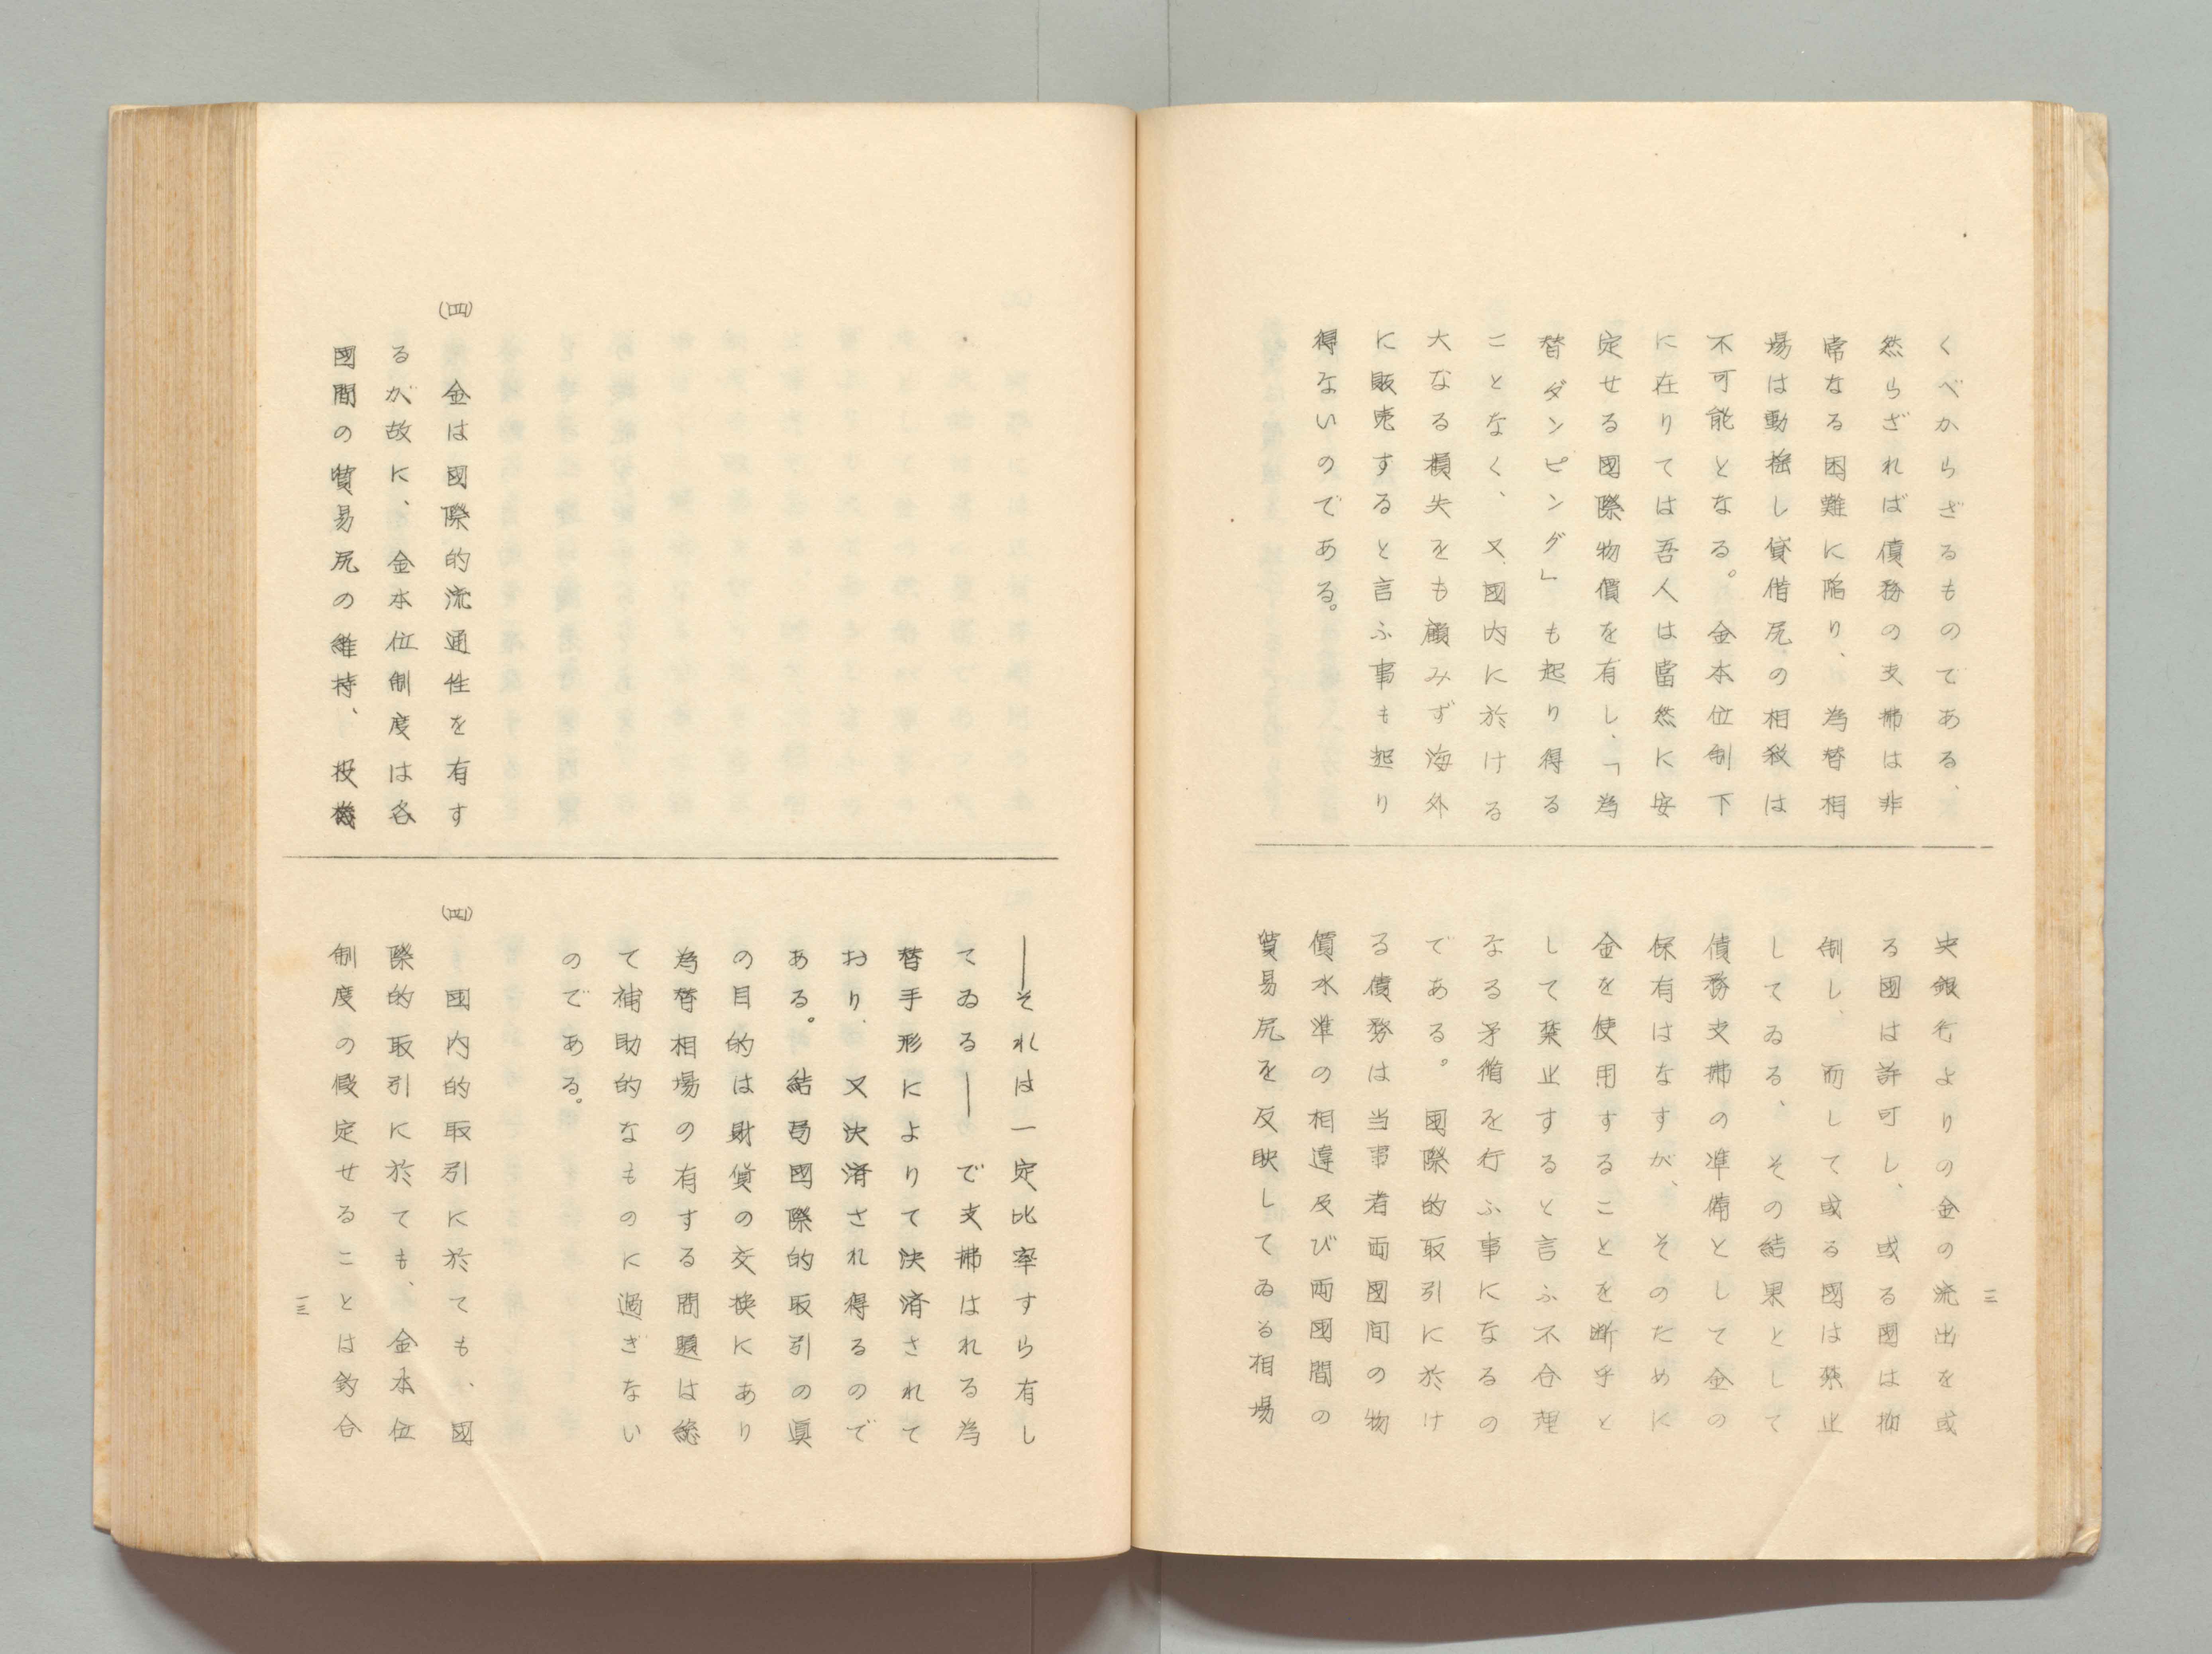 くべからざるものである、
然らざれば債務の支拂は非
常なる困難に陥り、為替相
場は動揺し貸借尻の相殺は
不可能となる。金本位制下
に在りては吾人は當然に安
定せる國際物價を有し、「為
替ダンピング」も起り得る
ことなく、又國内に於ける
大なる損失をも顧みず海外
に販売すると言ふ事も起り
得ないのである。
央銀行よりの金の流出を或
る國は許可し、或る國は抑
制し、而して或る國は禁止
してゐる、その結果として
債務支拂の準備として金の
保有はなすが、そのために
金を使用することを断乎と
して禁止すると言ふ不合理
なる矛循を行ふ事になるの
である。國際的取引に於け
る債務は当事者両國间の物
價水準の相違及び両國間の
貿易尻を反映してゐる相場
三
──それは一定比率すら有し
てゐる──で支拂はれる為
替手形によりて決済されて
おり、又決済され得るので
ある。結局國際的取引の眞
の目的は財貨の交換にあり
為替相場の有する問題は総
て補助的なものに過ぎない
のである。
(四)　金は國際的流通性を有す
るが故に、金本位制度は各
國間の貿易尻の維持、投機
(四)　國内的取引に於ても、國
際的取引に於ても、金本位
制度の假定せることは釣合
一三